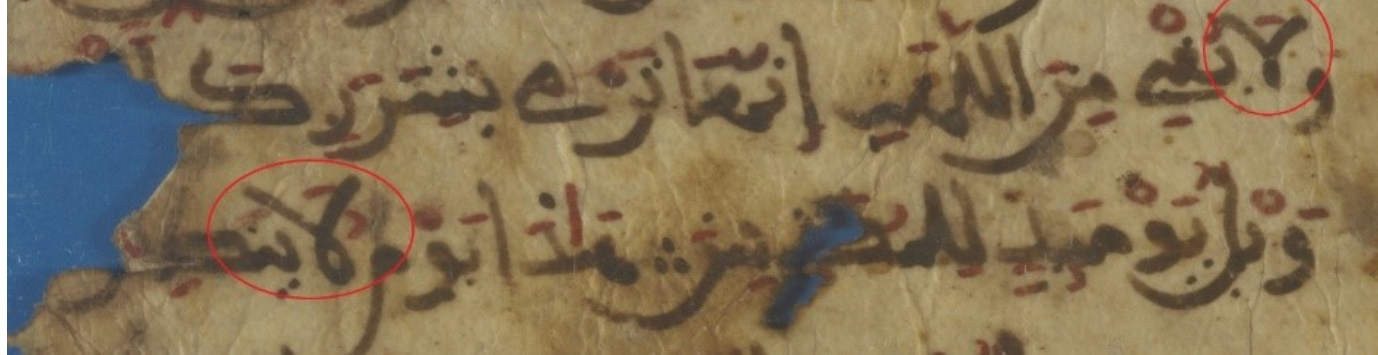 ولا يغني من اللهب انها ترمي بشرر ك
ويل يومئذ للمكذبين هذا يوم لا ينط